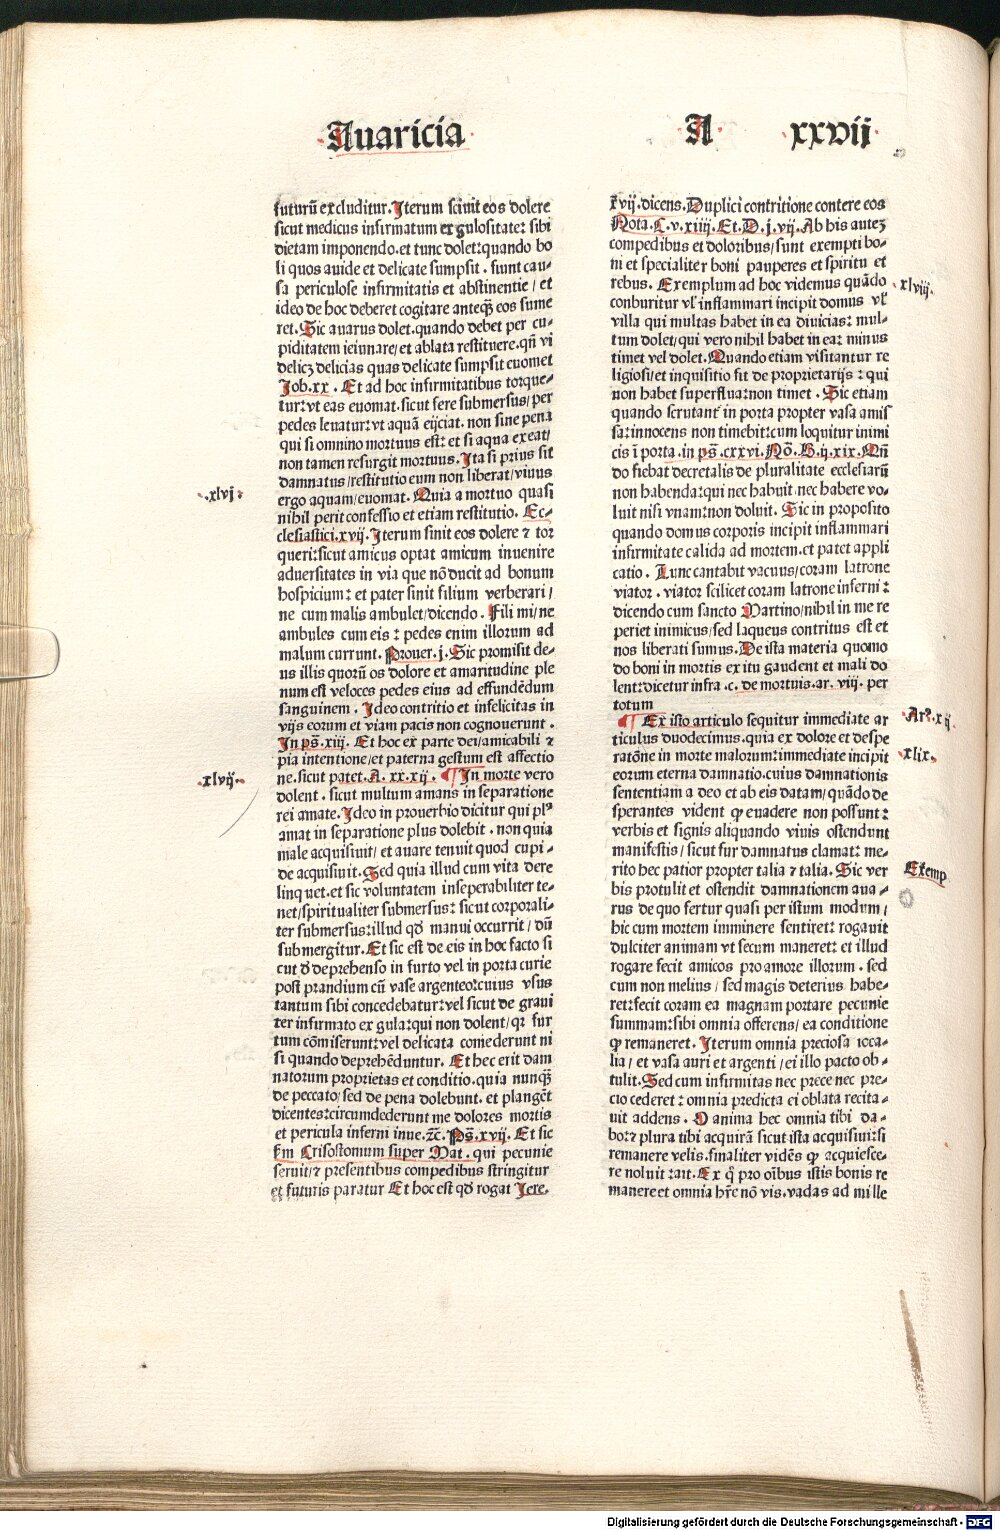 Auaricia
A xxvij
futurũ excluditur. Iterum sinit eos dolere
sicut medicus infirmatum ex gulositate: sibi
dietam imponendo. et tunc dolet: quando bo
li quos auide et delicate sumpsit. fiunt cau-
sa periculose infirmitatis et abstinentie / et
ideo de hoc deberet cogitare anteqȝ eos sume
ret. Sic auarus dolet. quando debet per cu-
piditatem ieiunare / et ablata restituere. qñ vi
delicȝ delicias quas delicate sumpsit euomet
Job. xx. Et ad hoc infirmitatibus torque-
tur: vt eas euomat. sicut fere submersus / per
pedes leuatur: vt aquã eijciat. non sine pena
qui si omnino mortuus est: et si aqua exeat /
non tamen resurgit mortuus. Ita si prius sit
damnatus / restitutio eum non liberat / viuus
.xlvj.
ergo aquam / euomat. Quia a mortuo quasi
nihil perit confessio et etiam restitutio. Ec-
clesiastici. xvij. Iterum sinit eos dolere ⁊ tor
queri: sicut amicus optat amicum inuenire
aduersitates in via que nõ ducit ad bonum
hospicium: et pater sinit filium verberari /
ne cum malis ambulet / dicendo. Fili mi / ne
ambules cum eis: pedes enim illorum ad
malum currunt. Prouer. j. Sic promisit de-
us illis quorũ os dolore et amaritudine ple
num est veloces pedes eius ad effundẽdum
sanguinem. Ideo contritio et infelicitas in
vijs eorum et viam pacis non cognouerunt.
In ps̃. xiij. Et hoc ex parte dei / amicabili ⁊
pia intentione / et paterna gestum est affectio
.xlvij.
ne. sicut patet. A. xx. xij. ¶ In morte vero
dolent. sicut multum amans in separatione
rei amate. Ideo in prouerbio dicitur qui plꝰ
amat in separatione plus dolebit. non quia
male acquisiuit / et auare tenuit quod cupi-
de acquisiuit. Sed quia illud cum vita dere
linquet. et sic voluntatem inseperabiliter te-
net / spiritualiter submersus: sicut corporali-
ter submersus: illud qd̃ manui occurrit / dũ
submergitur. Et sic est de eis in hoc facto si
cut d̃ deprehenso in furto vel in porta curie
post prandium cũ vase argenteo: cuius vsus
tantum sibi concedebatur: vel sicut de graui
ter infirmato ex gula: qui non dolent / qꝛ fur
tum cõmiserunt: vel delicata comederunt ni
si quando deprehẽduntur. Et hec erit dam
natorum proprietas et conditio. quia nunqȝ
de peccato / sed de pena dolebunt. et plangẽt
dicentes: circumdederunt me dolores mortis
et pericula inferni inue. ⁊c̃. Ps̃. xvij. Et sic
s̃m Crisostomum super Mat. qui pecunie
seruit / ⁊ presentibus compedibus stringitur
et futuris paratur Et hoc est qd̃ rogat Iere.
xvij. dicens. Duplici contritione contere eos
Nota. C. v. xiiij. Et. D. j. vij. Ab his autez
compedibus et doloribus / sunt exempti bo-
ni et specialiter boni pauperes et spiritu et
rebus. Exemplum ad hoc videmus quãdo
.xlviij.
conburitur vl̃ inflammari incipit domus vl̃
villa qui multas habet in ea diuicias: mul-
tum dolet / qui vero nihil habet in ea: minus
timet vel dolet. Quando etiam visitantur re
ligiosi / et inquisitio fit de proprietarijs: qui
non habet superflua: non timet. Sic etiam
quando scrutant᷑ in porta propter vasa amis
sa: innocens non timebit: cum loquitur inimi
cis ĩ porta. in ps̃. cxxvi. Nõ. B. ij. xix. Qñ
do fiebat decretalis de pluralitate ecclesiarũ
non habenda: qui nec habuit nec habere vo-
luit nisi vnam: non doluit. Sic in proposito
quando domus corporis incipit inflammari
infirmitate calida ad mortem. et patet appli
catio. Tunc cantabit vacuus / coram latrone
viator. viator scilicet coram latrone inferni:
dicendo cum sancto Martino / nihil in me re
periet inimicus / sed laqueus contritus est et
nos liberati sumus. De ista materia quomo
do boni in mortis exitu gaudent et mali do
lent: dicetur infra. c. de mortuis. ar. viij. per
totum
¶ Ex isto articulo sequitur immediate ar
Arꝰ. xij.
ticulus duodecimus. quia ex dolore et despe
ratõne in morte malorum: immediate incipit
xlix.
eorum eterna damnatio. cuius damnationis
sententiam a deo et ab eis datam / quãdo de
sperantes vident qp euadere non possunt:
verbis et signis aliquando viuis ostendunt
manifestis / sicut fur damnatus clamat: me-
rito hec patior propter talia ⁊ talia. Sic ver
Exemp
bis protulit et ostendit damnationem aua-
rus de quo fertur quasi per istum modum /
hic cum mortem imminere sentiret: rogauit
dulciter animam vt secum maneret: et illud
rogare fecit amicos pro amore illorum. sed
cum non melius / sed magis deterius habe-
ret: fecit coram ea magnam portare pecunie
summam: sibi omnia offerens / ea conditione
qp remaneret. Iterum omnia preciosa ioca-
lia / et vasa auri et argenti / ei illo pacto ob-
tulit. Sed cum infirmitas nec prece nec pre-
cio cederet: omnia predicta ei oblata recita-
uit addens. O anima hec omnia tibi da-
bo: ⁊ plura tibi acquirã sicut ista acquisiui: si
remanere velis. finaliter vidẽs qp acquiesce-
re noluit: ait. Ex q̃ pro oĩbus istis bonis re
manere et omnia hr̃e nõ vis. vadas ad mille
Digitalisierung gefördert durch die Deutsche Forschungsgemeinschaft - DFG